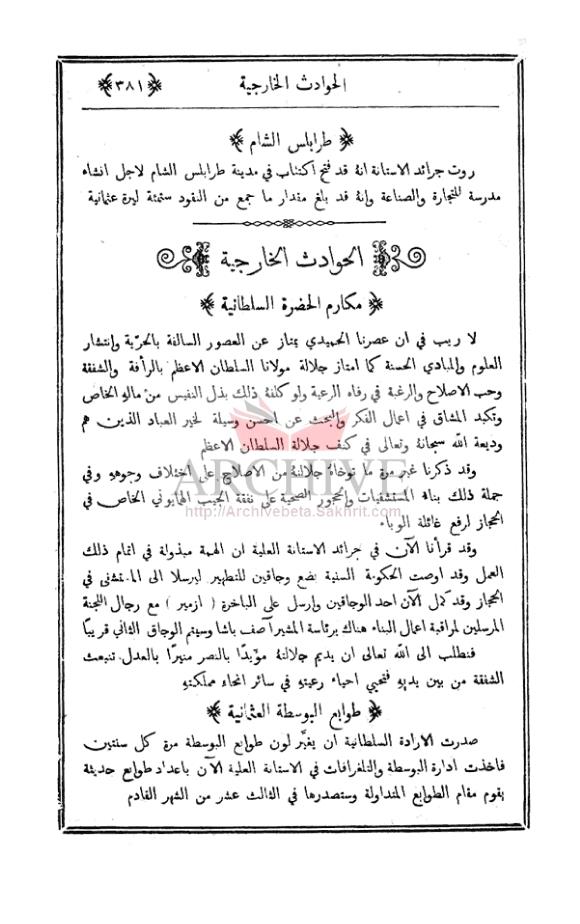 الحوادث الخارجية ﴿٣٨١﴾
﴿ طرابلس الشام ﴾
روت جرائد الاستانة انهُ قد فتح اكتتاب في مدينة طرابلس الشام لاجل انشاء
مدرسة للتجارة والصناعة وإنهُ قد بلغ مقدار ما جمع من النقود ستمئة ليرة عثمانية
الحوادث الخارجية
﴿ مكارم الحضرة السلطانية ﴾
لا ريب في ان عصرنا الحميدي يمتاز عن العصور السالفة بالحرّية وإنتشار
العلوم والمبادي الحسنة كما امتاز جلالة مولانا السلطان الاعظم بالرأفة والشفقة
وحب الاصلاح والرغبة في رفاء الرعية ولو كلفهُ ذلك بذل النفيس من مالهِ الخاص
وتكبد المشاق في اعمال الفكر والبحث عن احسن وسيلة لخير العباد الذين هم
وديعة الله سبحانهُ وتعالى في كنف جلالة السلطان الاعظم
وقد ذكرنا غير مرة ما توخاهُ جلالتهُ من الاصلاح على اختلاف وجوههِ وفي
جملة ذلك بناء المستشفيات والحجور الصحية على نفقة الجيب الهمايوني الخاص في
الحجاز لرفع غائلة الوباء
وقد قرأنا الآن في جرائد الاستانة العلية ان الهمة مبذولة في اتمام ذلك
العمل وقد اوصت الحكومة السنية بضع وجاقين للتطهير ليرسلا الى المستشفى في
الحجاز وقد كمل الآن احد الوجاقين وإرسل على الباخرة ( ازمير ) مع رجال اللجنة
المرسلين لمراقبة اعمال البناء هناك برئاسة المشير آصف باشا وسيتم الوجاق الثاني قريبًا
فنطلب الى الله تعالى ان يديم جلالتهُ مؤيدًا بالنصر منيرًا بالعدل تنبعث
الشفقة من بين يديهِ فتحيي احياء رعيتهِ في سائر انحاء مملكتهِ
﴿ طوابع البوسطة العثمانية ﴾
صدرت الارادة السلطانية ان يغيَّر لون طوابع البوسطة مرة كل سنتين
فاخذت ادارة البوسطة والتلغرافات في الاستانة العلية الآن باعداد طوابع حديثة
يقوم مقام الطوابع المتداولة وستصدرها في الثالث عشر من الشهر القادم
ARCHIVE
http://Archivebeta.Sakhrit.com